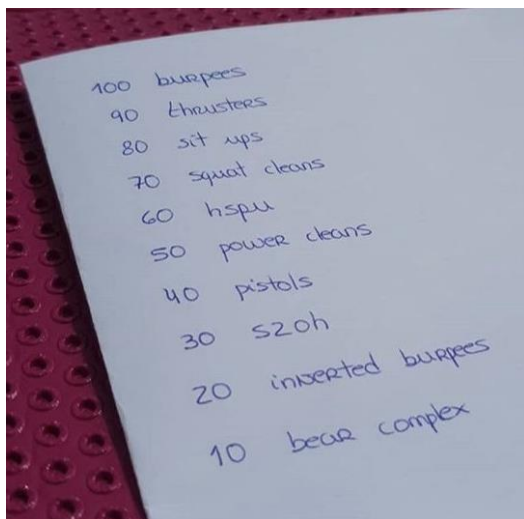 100 burpees
90 thrusters
80 sit ups
70 squat cleans
60 hspu
50 power cleans
40 pistols
30 s2oh
20 inverted burpees
10 bear complex